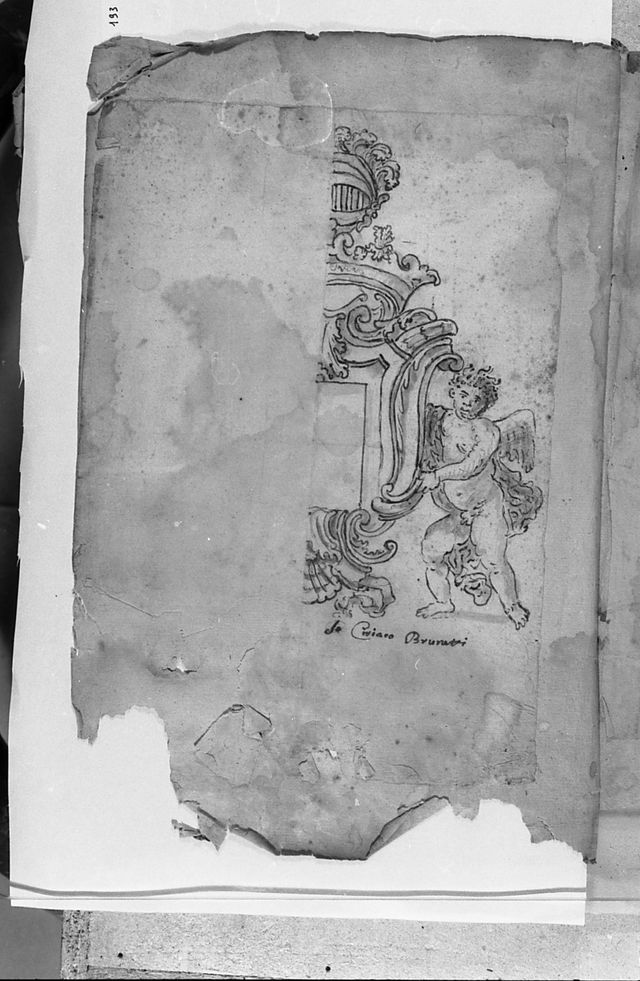 193
Io Ciriaco Brunatti